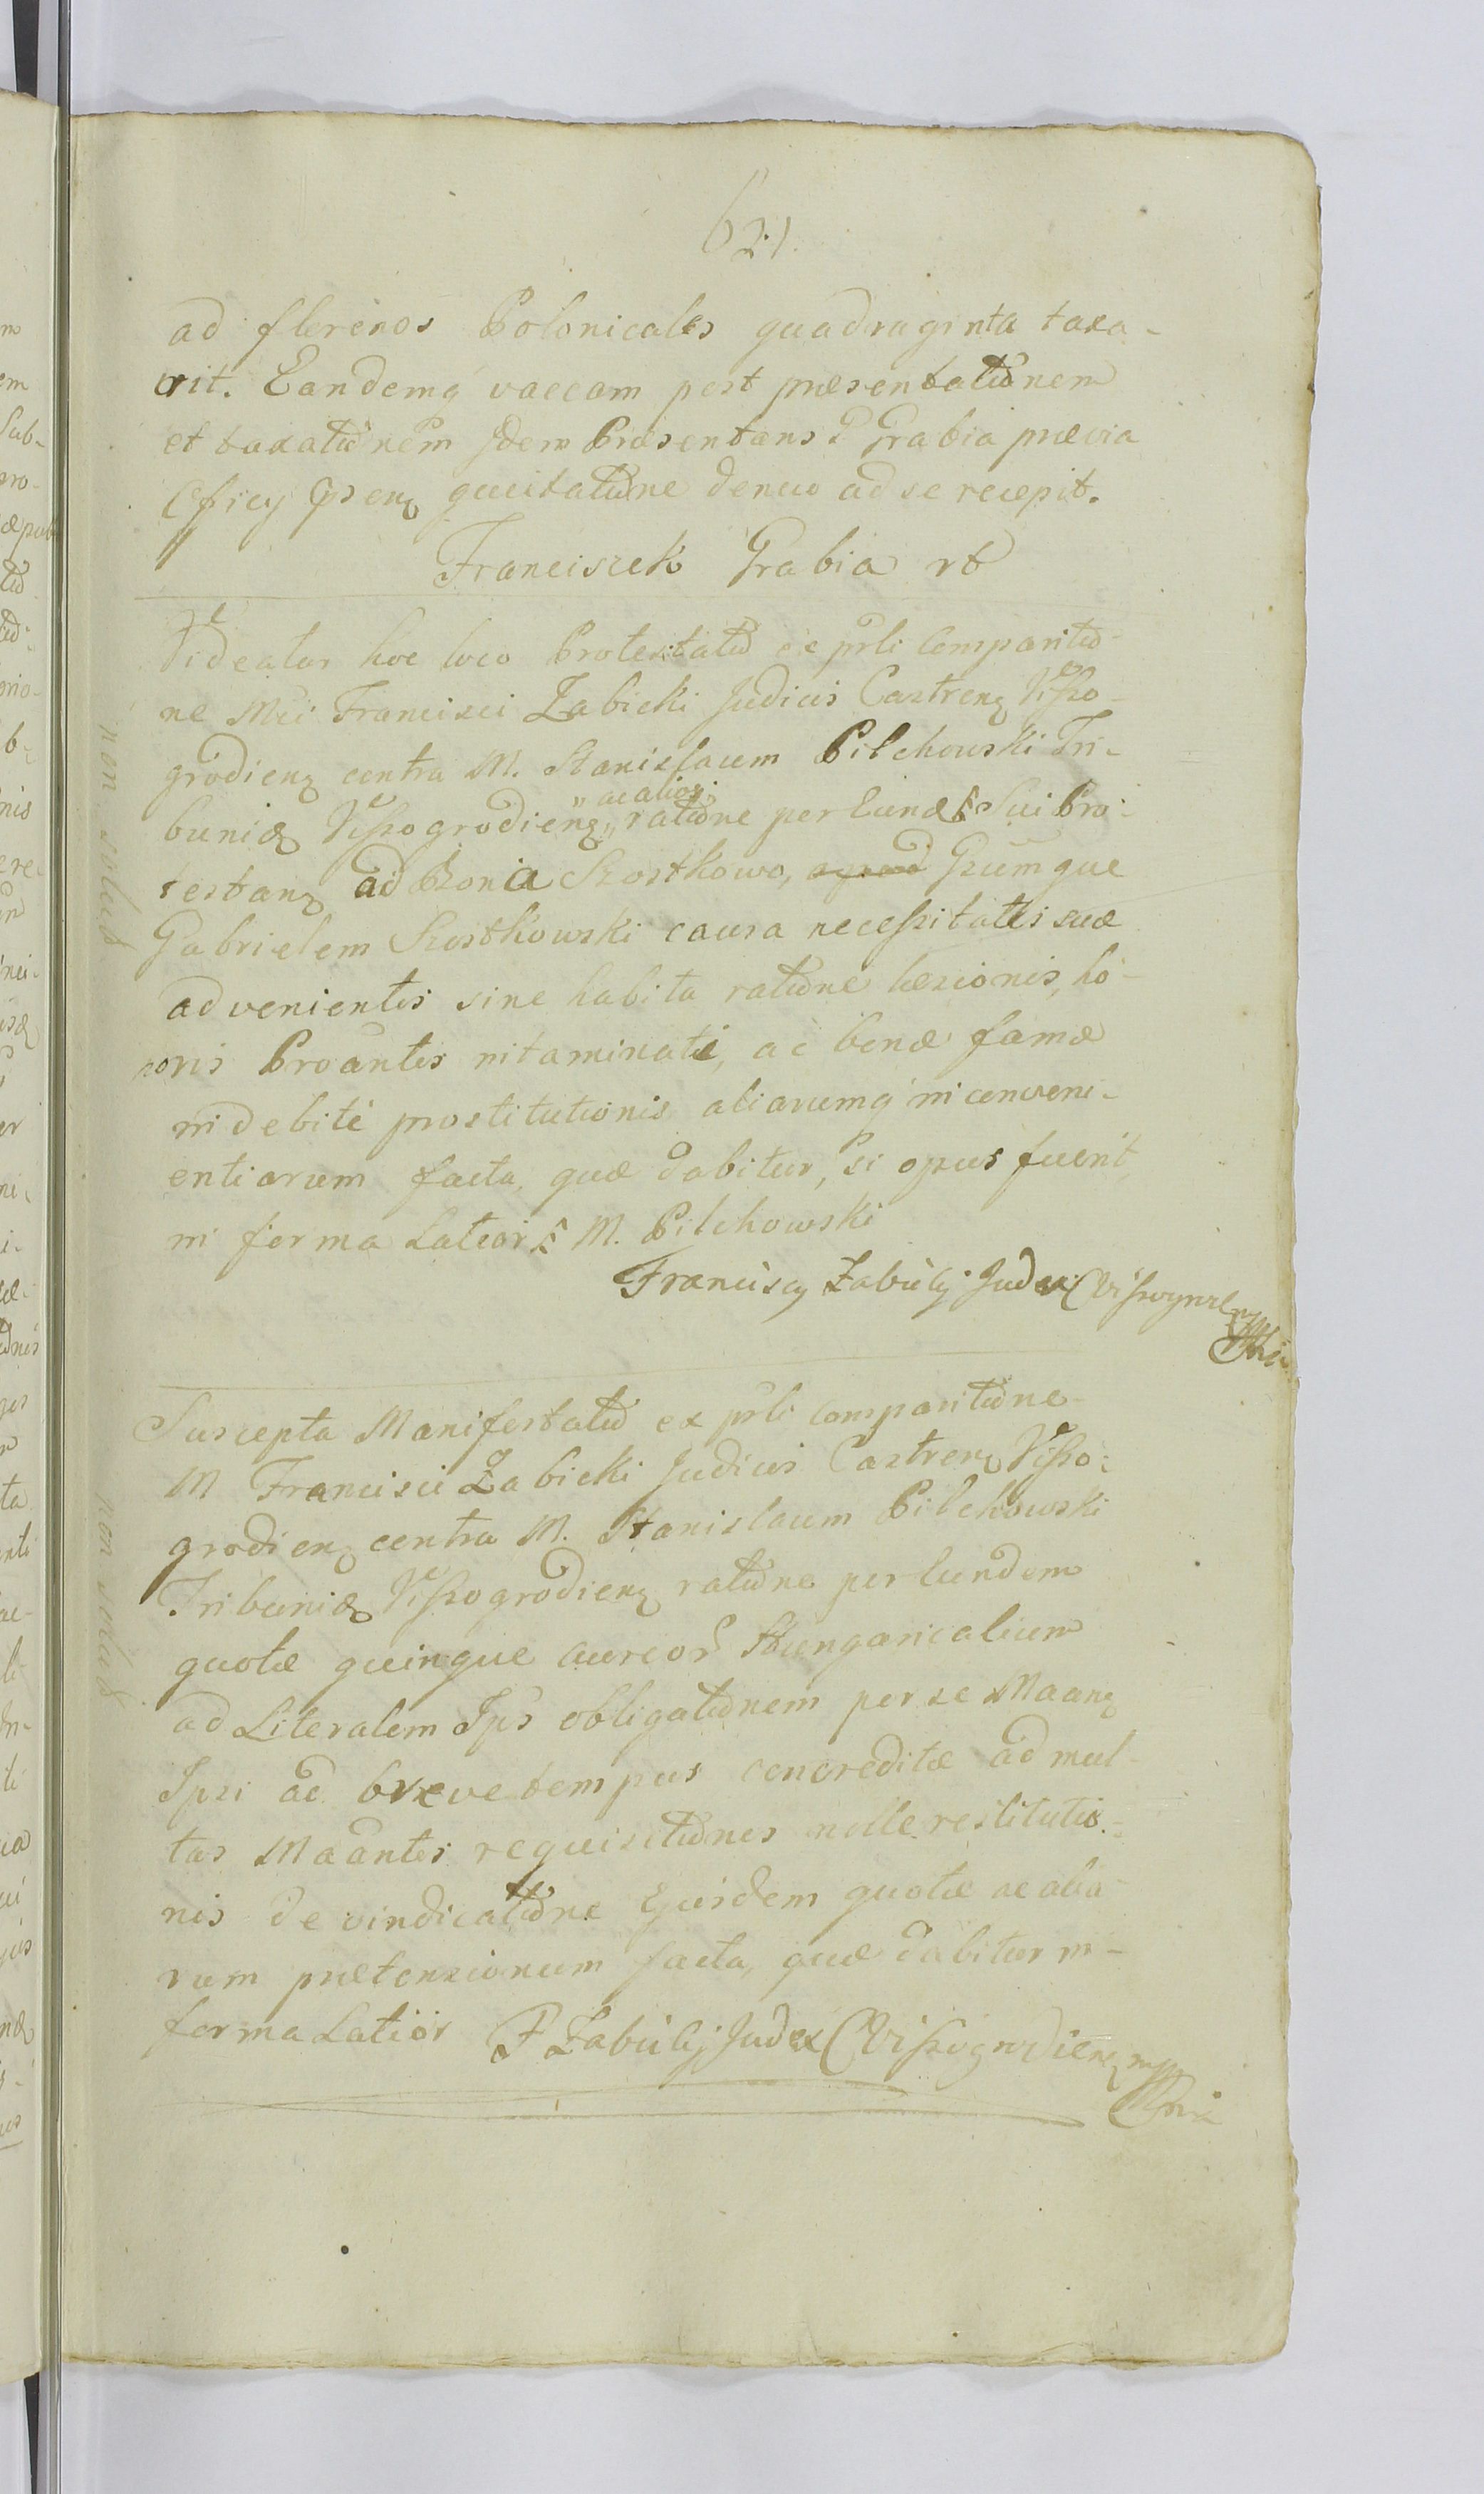 621.
ad florenos Polonicales quadraginta taxa-
vit. Eandemq vaccam post præsentatiōnem
et taxatiōnem Idem Præsentans P Grabia prævia
Officij Pñsenꝫ quietatiōne denuo ad se recepit.
Franciszek Grabia rb
Videatur hoc loco Protestatiō ex prli Comparitiō-
ne Mci Francisci Zabicki Judicis Castrenꝫ Viszo-
grodienꝫ contra M. Stanislaum Pilchowski Tri-
bunidꝫ Viszogrodienꝫ „ac alios„ ratiōne per Eund Sui Pro-
testanꝫ ad Bona Szostkowo, Gsumque
Gabrielem Szostkowski causa necessitatis suæ
advenientis sine habita ratiōne læsionis, ho-
noris Proantis intaminati, ac bonæ famæ
indebitè prostitutionis aliarumq inconveni-
entiarum facta, quæ dabitur, si opus fuerit,
in forma Latiori M. Pilchowski
Francisq Zabicky Judex C Viszogrodienꝫ
Suscepta Manifestatiō ex prli comparitiōne
M Francisci Zabicki Judicis Castrenꝫ Viszo-
grodienꝫ contra M. Stanislaum Pilchowski
Tribunidꝫ Viszogrodienꝫ ratiōne per Eundem
quotæ quinque aureor Hungaricalium
ad Literalem Ips obligatiōnem per se Maanꝫ
Ipsi ad breve tempus concreditæ ad mul-
tas Maantis requisitiōnes nolle restitutio-
nis de vindicatiōne Ejusdem quotæ ac alia-
rum prætensionum facta, quæ dabitur in
forma Latiori F Zabicky Judex C Viszogrodienꝫ mp
non solut
non solut